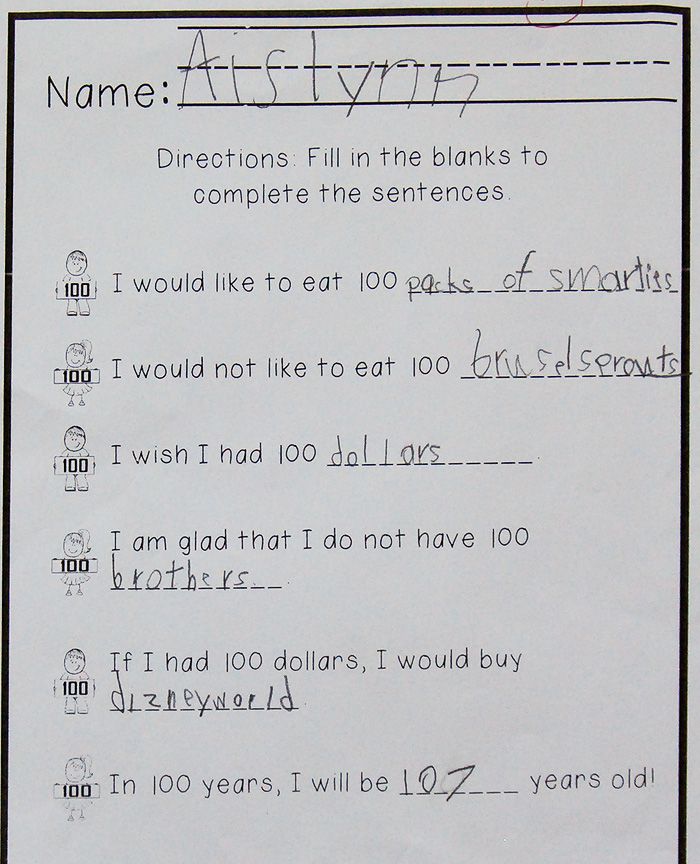 Name: Aislynn
Directions: Fill in the blanks to
complete the sentences.
100 I would like to eat 100 packs of smarties
100 I would not like to eat 100 bruselsprouts
100 I wish I had 100 dollars.
I am glad that I do not have 100
100 brothers.
If I had 100 dollars, I would buy
100 dizneyworld.
100 In 100 years, I will be 107 years old!